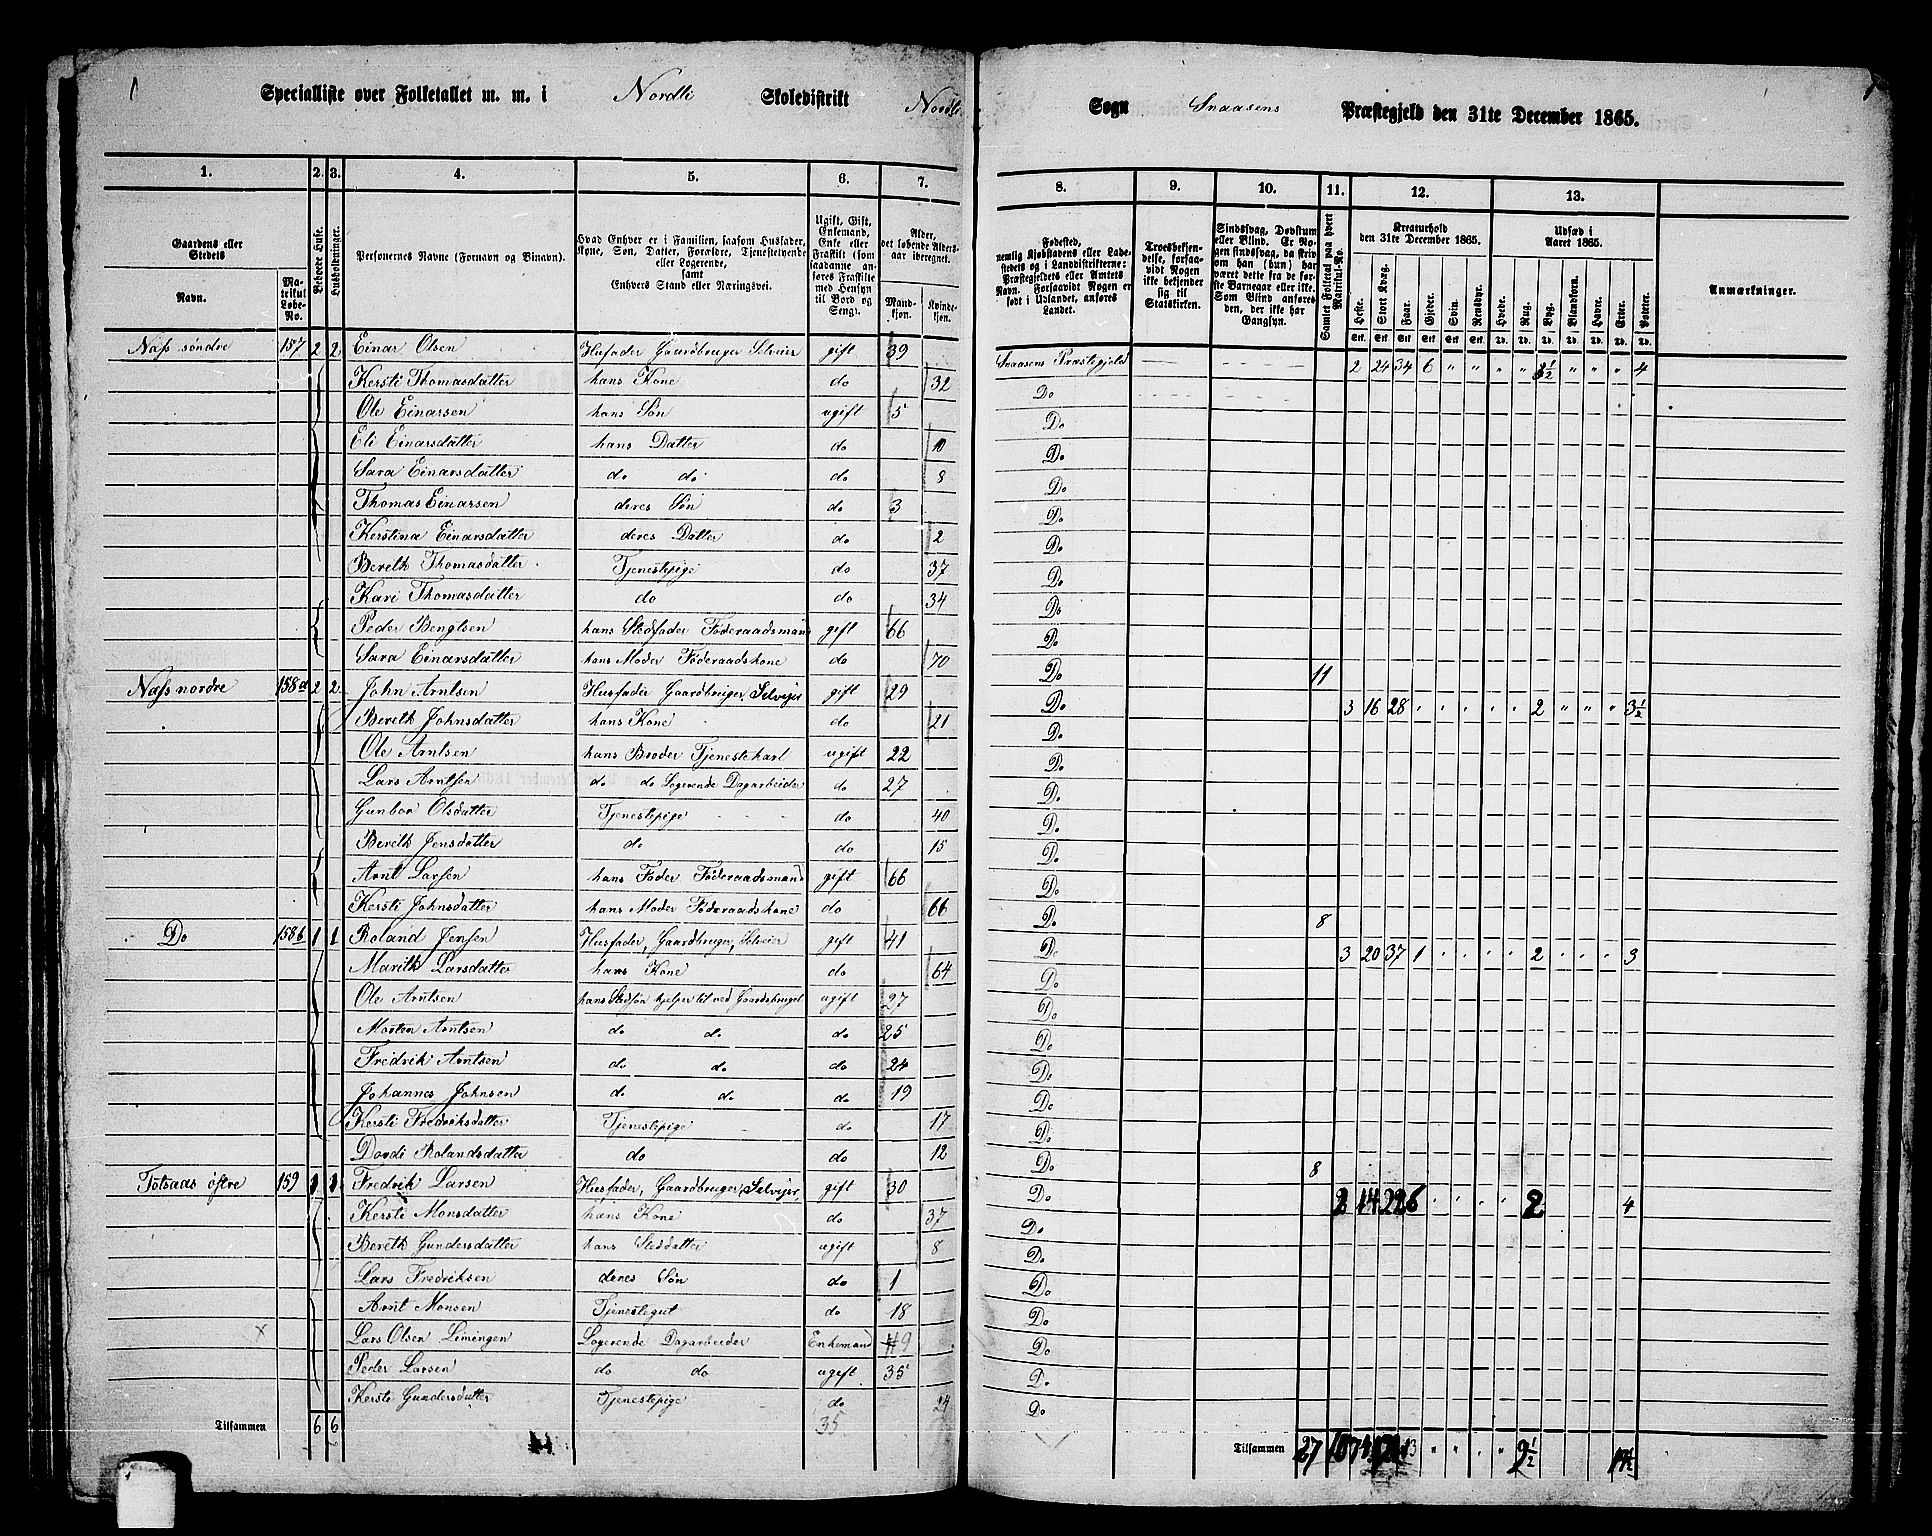 Specialliste over Folketallet m. m. i Nordli Skoledistrikt Nordli Sogn Snaasens Præstegjeld den 31te December 1865.
1. 2. 3. 4. 5. 6. 7. 8. 9. 10. 11. 12. 13.
Gaardens eller Stedets Navn. Matrikul Løbe-No. Beboede Huse. Husholdninger. Personernes Navne (Fornavn og Tilnavn). Hvad Enhver er i Familien, saasom Husfader, Kone, Søn, Datter, Forældre, Tjenestetyende eller Logerende, samt Enhvers Stand eller Næringsvei. Ugift, Gift, Enkemand, Enke eller Fraskilt (som saadanne anføres Fraskilte med Hensyn til Bord og Seng). Alder, det løbende Aldersaar iberegnet. Mandkjøn. Kvindekjøn.
Fødested, nemlig Kjøbstadens eller Ladestedets og i Landdistrikterne: Præstegjeldets eller Amtets Navn. Forsaavidt Nogen er født i Udlandet, anføres Landet. Troesbekjendelse, forsaavidt Nogen ikke bekjender sig til Statskirken. Sindssvag, Døvstum eller Blind. Er Nogen sindssvag, da skriv om han (hun) har været dette fra de første Barneaar eller ikke. Som Blind anføres den, der ikke har Gangsyn. Samlet Folketal paa hvert Matrikul-No. Kreaturhold den 31te December 1865. Heste. Stort Kvæg. Faar. Gjeder. Svin. Rensdyr. Udsæd i Aaret 1865. Hvede. Rug. Byg. Blandkorn. Havre. Erter. Poteter. Anmærkninger.
Næss søndre 157 2 2 Einar Olsen Husfader Gaardbruger Selveier gift 39 Snaasens Præstegjeld 2 24 34 6 " " " " 3½ " " " 4
Kersti Thomasdatter hans Kone do 32 Do
Ole Einarsen hans Søn ugift 5 Do
Eli Einarsdatter hans Datter do 10 Do
Sara Einarsdatter do do do 8 Do
Thomas Einarsen deres Søn do 3 Do
Kerstina Einarsdatter deres Datter do 2 Do
Bereth Thomasdatter Tjenestepige do 37 Do
Kari Thomasdatter do do 34 Do
Peder Bengtsen hans Stedfader Føderaadsmand gift 66 Do
Sara Einarsdatter hans Moder Føderaadskone do 70 Do 11
Næss nordre 158a 2 2 John Arntsen Husfader Gaardbruger Selveier gift 29 Do 3 16 28 " " " " " 2 " " " 3½
Bereth Johnsdatter hans Kone do 21 Do
Ole Arntsen hans Broder Tjenestekarl ugift 22 Do
Lars Arntsen do do Logerende Dagarbeider do 27 Do
Gunbor Olsdatter Tjenestepige do 40 Do
Bereth Jensdatter do do 15 Do
Arnt Larsen hans Fader Føderaadsmand gift 66 Do
Kersti Johnsdatter hans Moder Føderaadskone do 66 Do 8
Do 158b 1 1 Roland Jensen Husfader, Gaardbruger, Selveier gift 41 Do 3 20 37 1 " " " " 2 " " " 3
Marith Larsdatter hans Kone do 64 Do
Ole Arntsen hans Stedsøn hjelper til ved Gaardsbruget ugift 27 Do
Morten Arntsen do do do 25 Do
Fredrik Arntsen do do do 24 Do
Johannes Johnsen do do do 19 Do
Kersti Fredriksdatter Tjenestepige do 17 Do
Dordi Rolandsdatter do do 12 Do 8
Totsaas østre 159 1 1 Fredrik Larsen Husfader, Gaardbruger, Selveier gift 30 Do 2 14 22 6 " " " " 2 4
Kersti Monsdatter hans Kone do 37 Do
Bereth Gundersdatter hans Steddatter ugift 8 Do
Lars Fredriksen deres Søn do 1 Do
Arnt Monsen Tjenestegut do 18 Do
x Lars Olsen Limingen Logerende Dagarbeider Enkemand 49 Do
Peder Larsen do do ugift 35 Do
Kersti Gundersdatter Tjenestepige do 24 Do
Tilsammen 6 6 35 Tilsammen 27 10 74 121 13 " " " " 9½